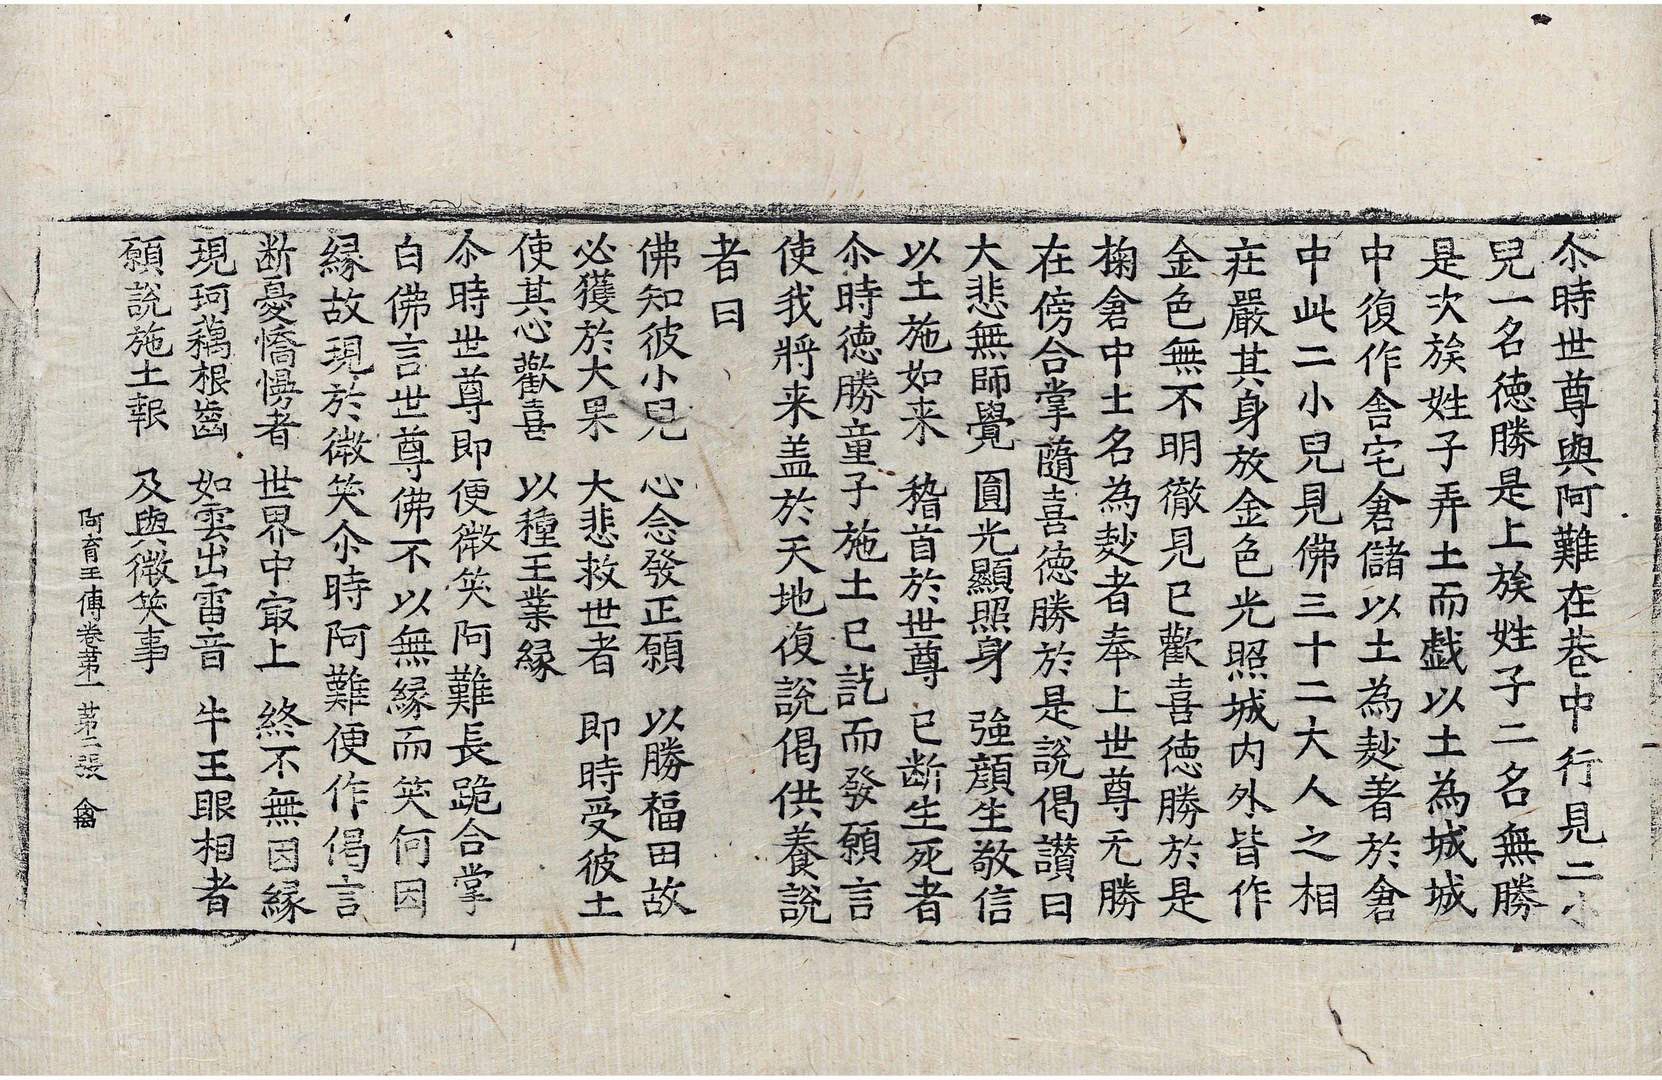 尒時世尊與阿難在巷中行見二小
兒一名德勝是上族姓子二名無勝
是次族姓子弄土而戱以土為城城
中復作舎宅倉儲以土為麨著於倉
中此二小兒見佛三十二大人之相
莊嚴其身放金色光照城内外皆作
金色無不明徹見已歡喜德勝於是
掬倉中土名為麨者奉上世尊无勝
在傍合掌隨喜德勝於是說偈讃曰
大悲無師覺　圓光顯照身　強顔生敬信
以土施如来　稽首於世尊　已断生死者
尒時德勝童子施土已訖而發願言
使我將来盖於天地復說偈供養說
者曰
佛知彼小兒　心念發正願　以勝福田故
必獲於大果　大悲救世者　即時受彼土
使其心歡喜　以種王業緣
尒時世尊即便微笑阿難長跪合掌
白佛言世尊佛不以無緣而笑何因
緣故現於微笑尒時阿難便作偈言
断憂憍慢者　世界中冣上　終不無因緣
現珂藕根齒　如雲出雷音　牛王眼相者
願說施土報　及與微笑事
阿育王傳卷第一　第二張　禽